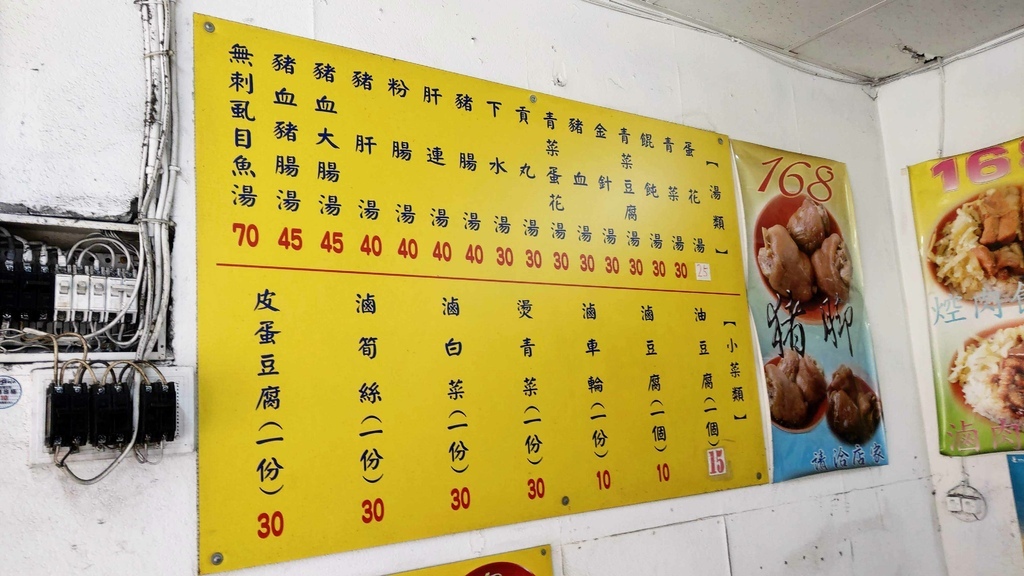 【湯類】
蛋花湯 25
青菜湯 30
餛飩湯 30
青菜豆腐湯 30
金針湯 30
豬血湯 30
青菜蛋花湯 30
貢丸湯 30
下水湯 30
豬腸湯 40
肝連湯 40
粉腸湯 40
豬肝湯 40
豬血大腸湯 45
豬血豬腸湯 45
無刺虱目魚湯 70
【小菜類】
油豆腐(一個) 15
滷豆腐(一個) 10
滷車輪(一份) 10
燙青菜(一份) 30
滷白菜(一份) 30
滷筍絲(一份) 30
皮蛋豆腐(一份) 30
168
豬腳
請洽店家
168
焢肉飯
滷肉